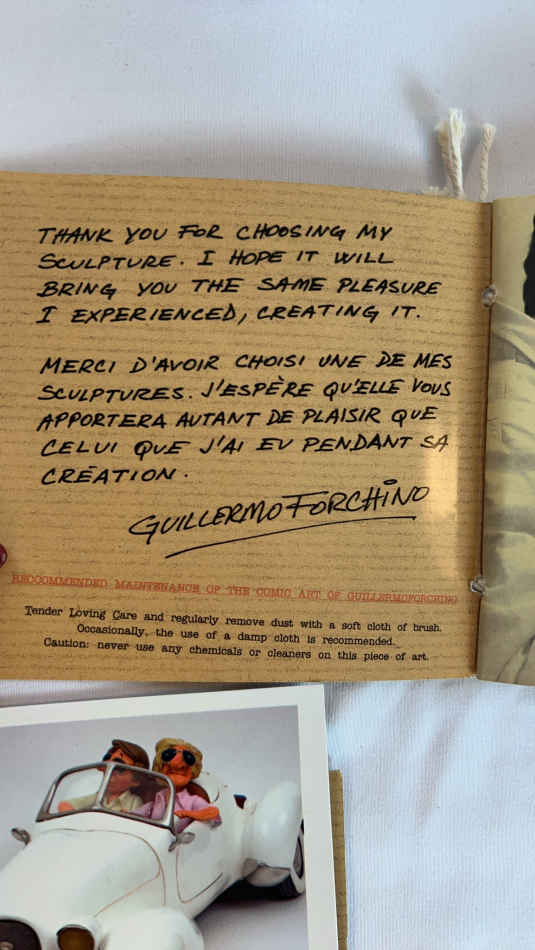 THANK YOU FOR CHOOSING MY
SCULPTURE. I HOPE IT WILL
BRING YOU THE SAME PLEASURE
I EXPERIENCED, CREATING IT.
MERCI D'AVOIR CHOISI UNE DE MES
SCULPTURES. J'ESPÈRE QU'ELLE VOUS
APPORTERA AUTANT DE PLAISIR QUE
CELUI QUE J'AI EU PENDANT SA
CRÉATION.
GUILLERMO FORCHINO
RECOOMMENDED MAINTENANCE OF THE COMIC ART OF GUILLERMOFORCHINO
Tender Loving Care and regularly remove dust with a soft cloth of brush.
Occasionally, the use of a damp cloth is recommended.
Caution: never use any chemicals or cleaners on this piece of art.